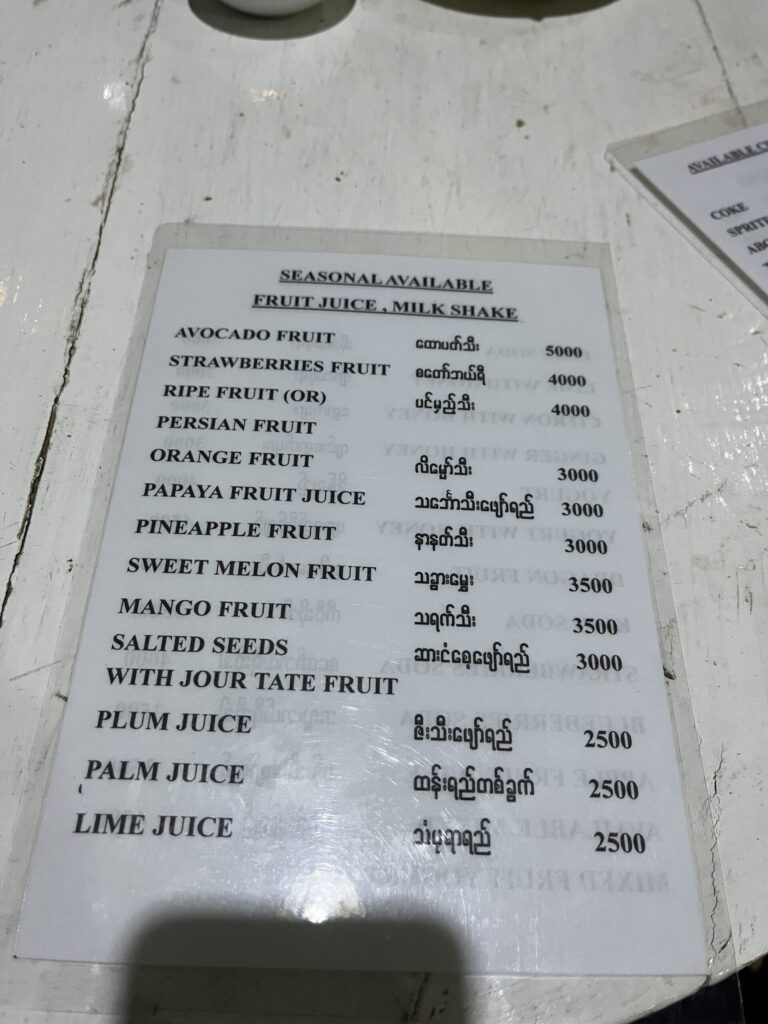 SEASONAL AVAILABLE
FRUIT JUICE , MILK SHAKE
AVOCADO FRUIT ထောပတ်သီး 5000
STRAWBERRIES FRUIT စတော်ဘယ်ရီ 4000
RIPE FRUIT (OR) ပင်မှည့်သီး 4000
PERSIAN FRUIT
ORANGE FRUIT လိမ္မော်သီး 3000
PAPAYA FRUIT JUICE သင်္ဘောသီးဖျော်ရည် 3000
PINEAPPLE FRUIT နာနတ်သီး 3000
SWEET MELON FRUIT သခွားမွှေး 3500
MANGO FRUIT သရက်သီး 3500
SALTED SEEDS ဆားငံစေ့ဖျော်ရည် 3000
WITH JOUR TATE FRUIT
PLUM JUICE ဇီးသီးဖျော်ရည် 2500
PALM JUICE ထန်းရည်တစ်ခွက် 2500
LIME JUICE သံပုရာရည် 2500
AVAILABLE
COKE
SPRITE